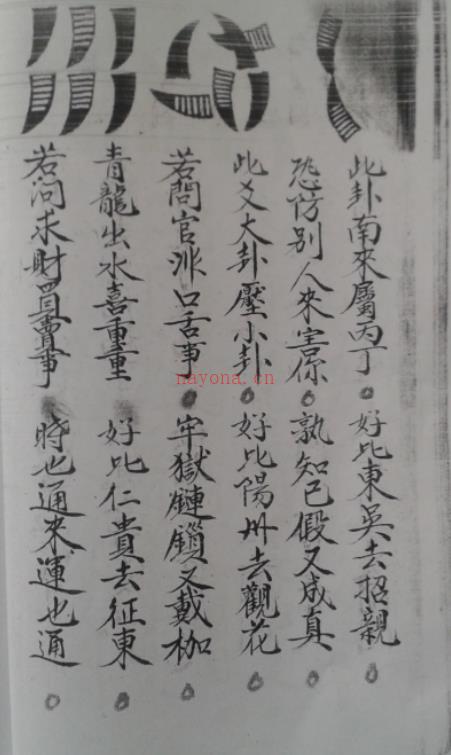 此卦南來屬丙丁。好比東吳去招親。
恐防别人來害係。孰知已假又成真。
此爻大卦壓小卦。好比陽州去觀花。
若問官非口舌事。牢獄鏈鎖又戴枷。
青龍出水喜重重 好比仁貴去征東。
若问求財買賣事 時也通來運也通。
nayona.cn